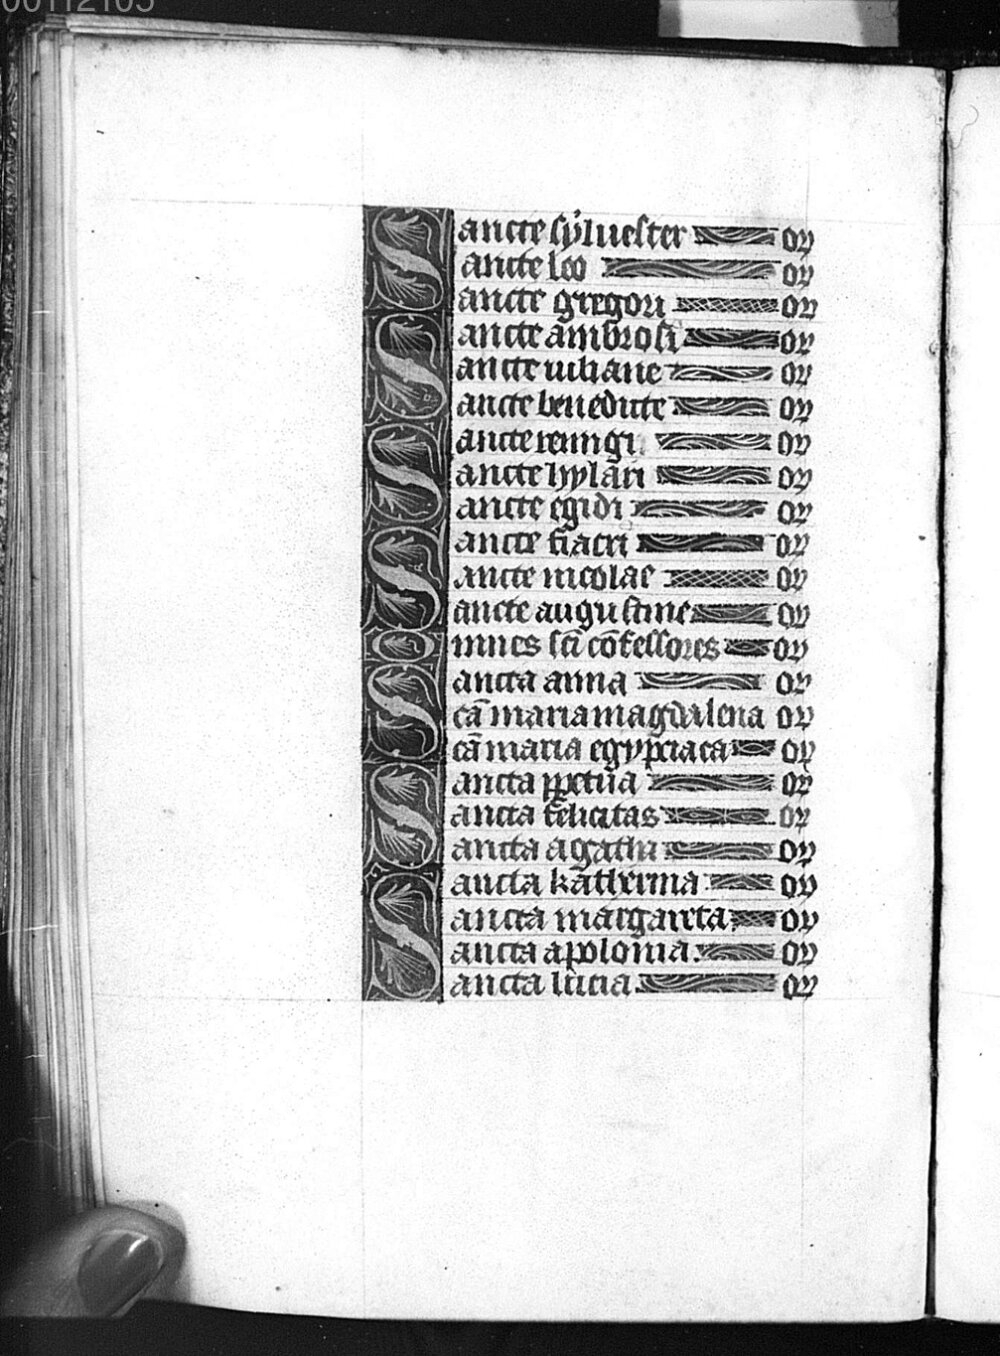 00112105
Sancte syluester or
Sancte leo or
Sancte gregori or
Sancte ambrosi or
Sancte iuliane or
Sancte benedicte or
Sancte remigi or
Sancte hylari or
Sancte egidi or
Sancte fiacri or
Sancte nicolae or
Sancte augustine or
Omnes sci cōfessores or
Sancta anna or
Scā maria magdalena or
Scā maria egypciaca or
Sancta ppetua or
Sancta felicitas or
Sancta agatha or
Sancta katherina or
Sancta margareta or
Sancta apolonia. or
Sancta lucia or